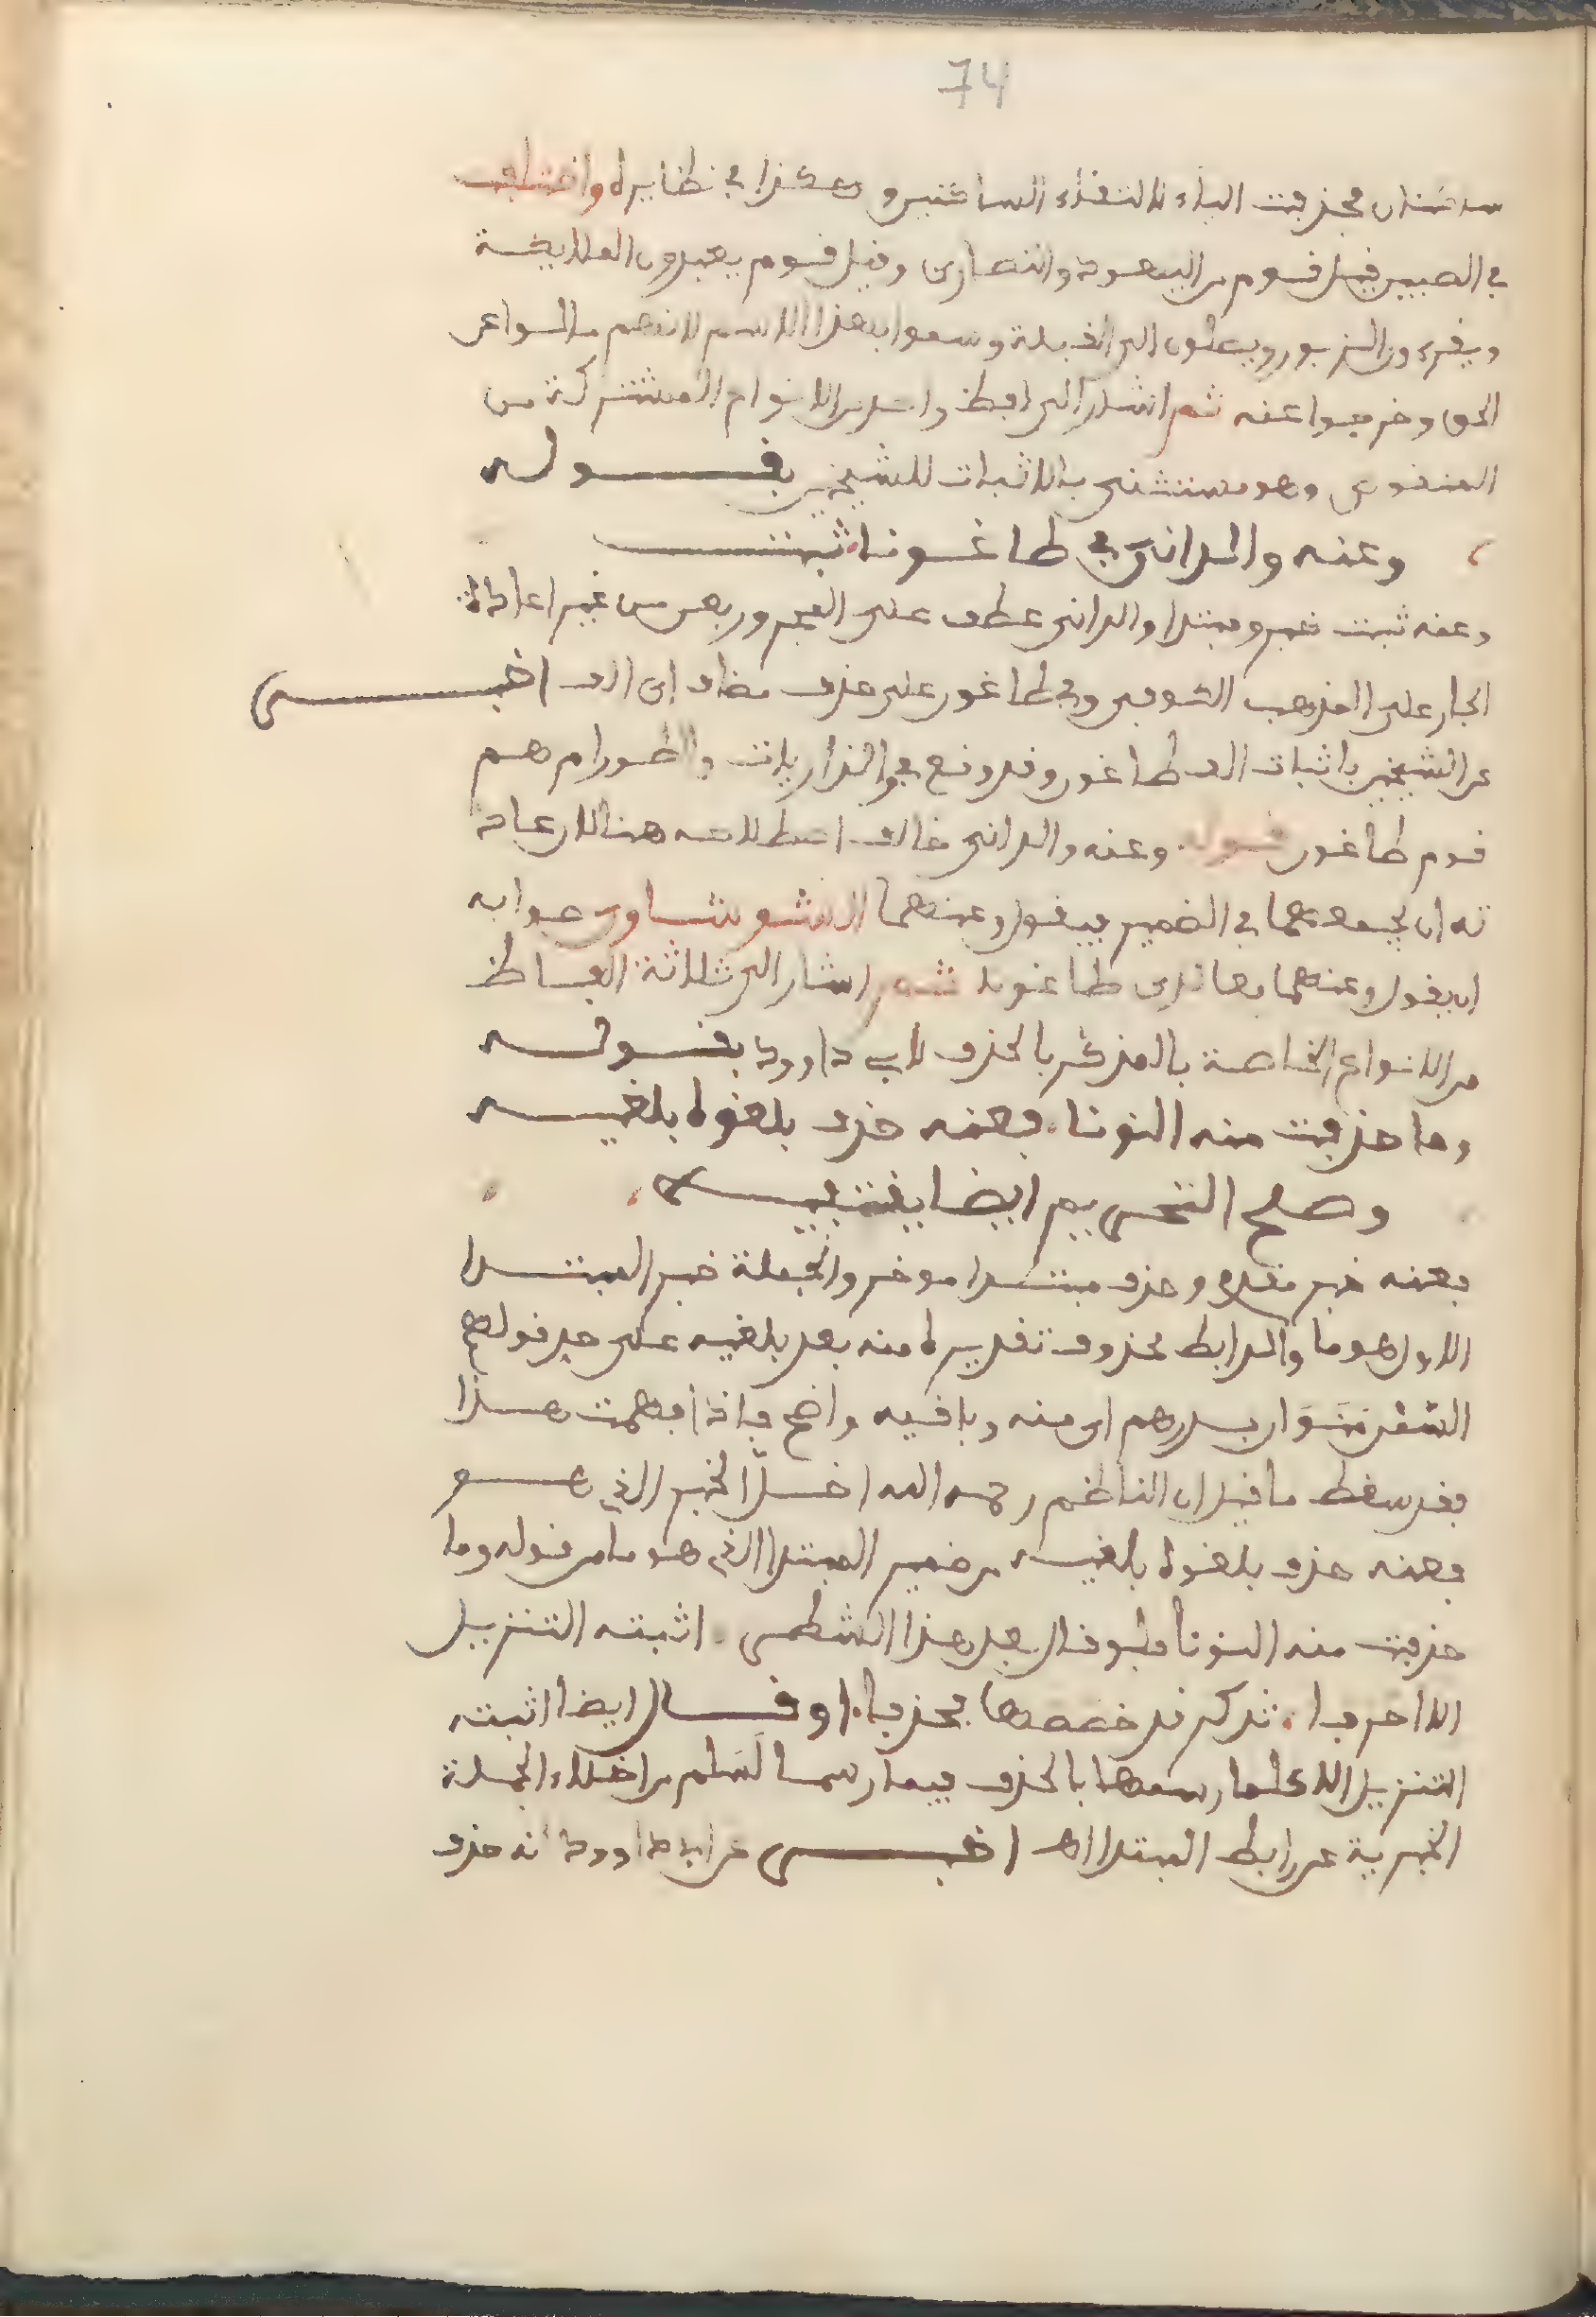 74
ساكنان فحذفت الياء لالتقاء الساكنين وهكذا في نظايره واختلف
في الصبين فقيل قوم من اليهود والنصارى وقيل قوم يعبدون الملايكة
ويقرءون الزبور ويصلون الى القبلة وسموا بهذا الاسم لانهم مالوا عن
الحق وخرجوا عنه ثم اشار الى لفظ واحد من الانواع المشتركة من
المنقوص وهو مستثنى بالاثبات للشيخين بقوله
وعنه والداني في طاغونا ثبت
وعنه ثبت خبر ومبتدا والداني عطف على المجرور بعن من غير اعادة
الجار على المذهب الكوفي وفي طاغون على حذف مضاف اي الف اخبر
عن الشيخين باثبات الف طاغون وقد وقع في والذاريات والطور ام هم
قوم طاغون قوله وعنه والداني خالف اصطلاحه هنا لان عادة
ته ان يجمعهما في الضمير فيقول وعنهما الشوشاوي صوابه
ان يقول وعنهما طاغونا ثم اشار الى ثلاثة الفاظ
من الانواع الخاصة بالمذكر بالحذف لابي داوود بقوله
وما حذفت منه النونا فعنه حذف بلغوه بلغيه
وصلح التحريم ايضا يقتفيه
فعنه خبر مقدم وحذف مبتدا موخر والجملة خبر المبتدا
الاول هو ما والرابط محذوف تقديره منه بعد بلغيه على حد قولهم
السمن منوان بدرهم اي منه وباقيه واضح فاذا فهمت هذا
فقد سقط ما قيل ان الناظم رحمه الله اخلا الخبر الذي هو
فعنه حذف بلغوه بلغيه من ضمير المبتدا الذي هو ما من قوله وما
حذفت منه النونا فلو قال بعد هذا الشطر اثبته التنزيل
الا احرفا تذكر قد خصصها بحذفا او قال ايضا اثبته
التنزيل الا كلما رسمها بالحذف فيما رسما لسلم من اخلاء الجملة
الخبرية عن رابط المبتدا اهـ اخبر عن ابي داوود انه حذف